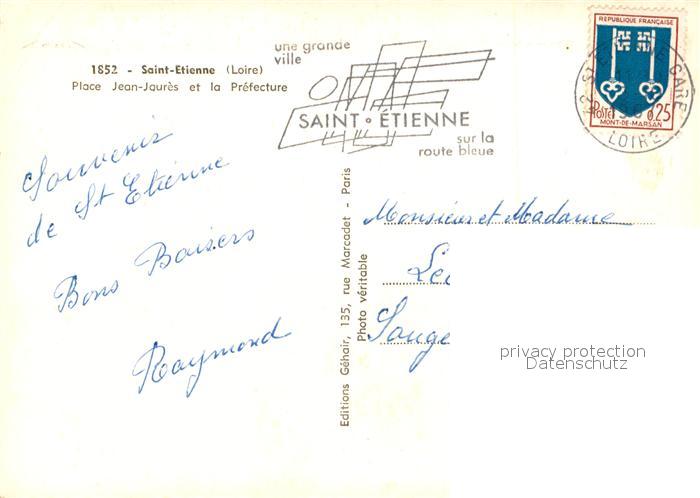 1852 - Saint-Etienne (Loire)
Place Jean-Jaurès et la Préfecture
une grande
ville
SAINT • ÉTIENNE
sur la
route bleue
REPUBLIQUE FRANÇAISE
Postes 0,25
MONT-DE-MARSAN
GARE
LOIRE
Souvenir
de St Etienne
Bons Baisers
Raymond
Editions Géhair, 135, rue Marcadet - Paris
Photo véritable
Monsieur et Madame
privacy protection
Datenschutz